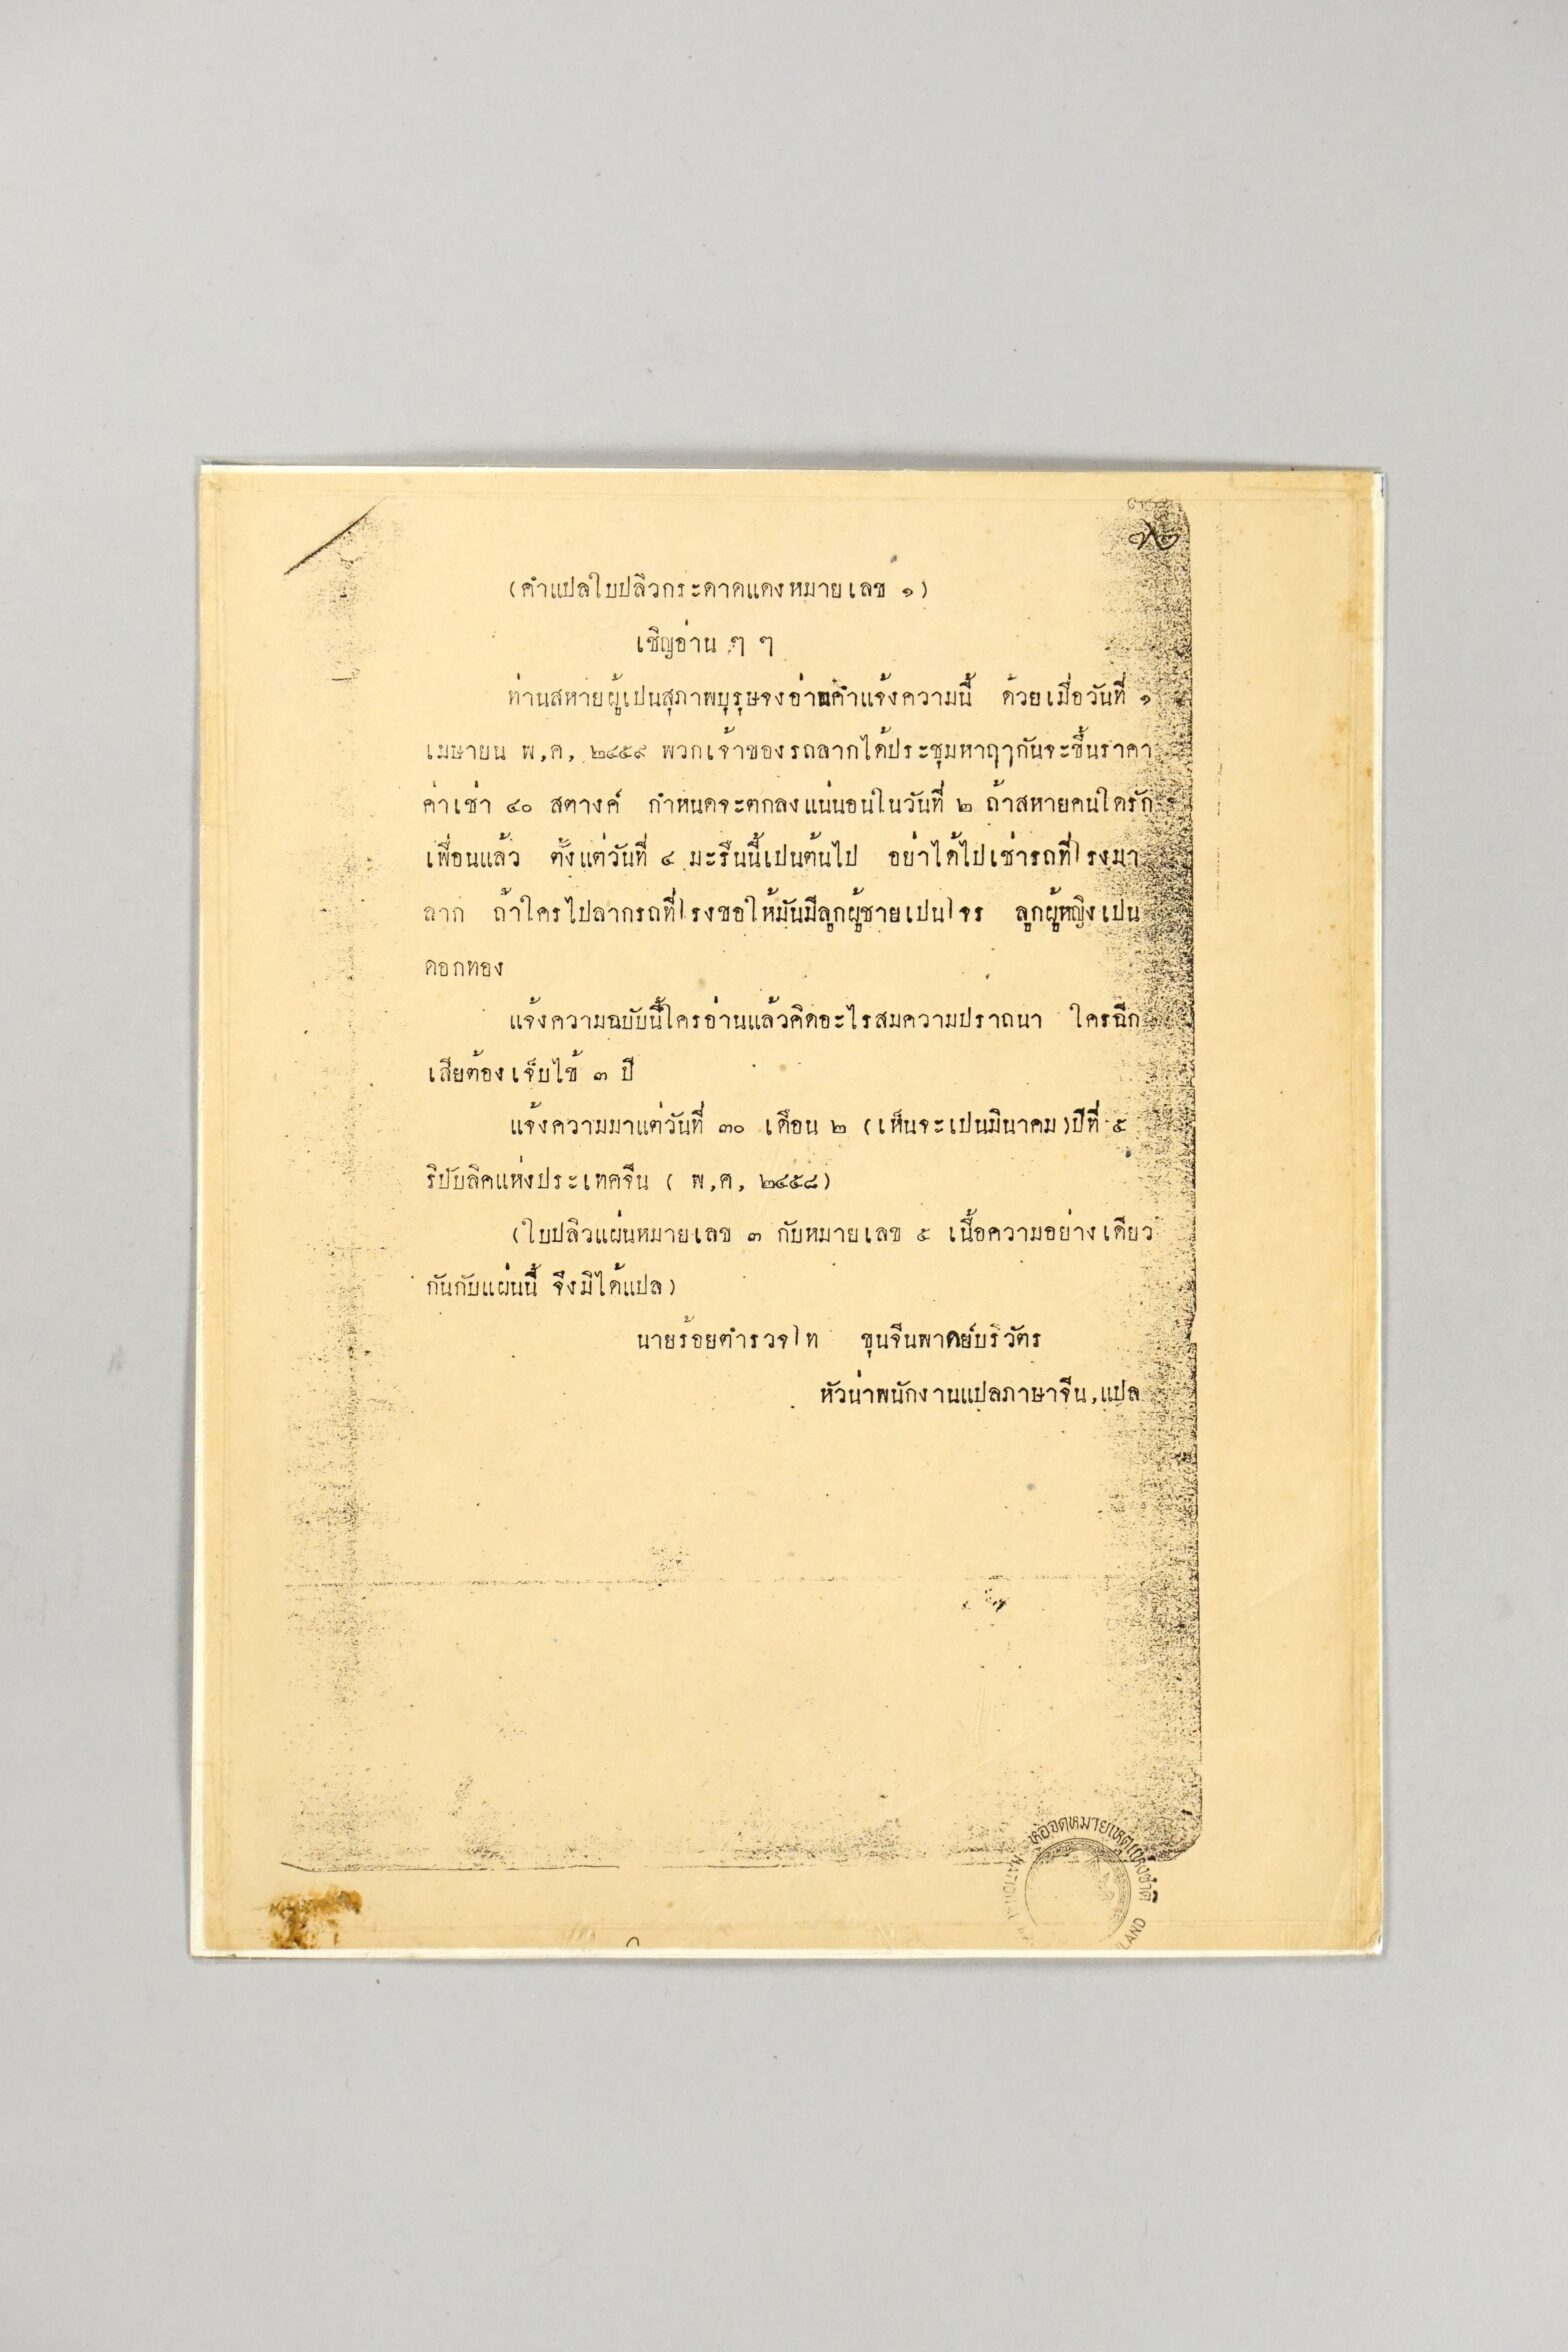 (คำแปลใบปลิวกระดาดแดงหมายเลข ๑)
เชิญอ่าน ๆ ๆ
ท่านสหายผู้เปนสุภาพบุรุษจงอ่านคำแจ้งความนี้ ด้วยเมื่อวันที่ ๑
เมษายน พ,ศ, ๒๔๕๙ พวกเจ้าของรถลากได้ประชุมหาฤๅกันจะขึ้นราคา
ค่าเช่า ๔๐ สตางค์ กำหนดจะตกลงแน่นอนในวันที่ ๒ ถ้าสหายคนใดรัก
เพื่อนแล้ว ตั้งแต่วันที่ ๔ มะรืนนี้เปนต้นไป อย่าได้ไปเช่ารถที่โรงมา
ลาก ถ้าใครไปลากรถที่โรงขอให้มันมีลูกผู้ชายเปนโจร ลูกผู้หญิงเปน
ดอกทอง
แจ้งความฉบับนี้ใครอ่านแล้วคิดอะไรสมความปราถนา ใครฉีก
เสียต้องเจ็บไข้ ๓ ปี
แจ้งความมาแต่วันที่ ๓๐ เดือน ๒ (เห็นจะเปนมินาคม)ปีที่ ๕
ริปับลิคแห่งประเทศจีน ( พ,ศ, ๒๔๕๘)
(ใบปลิวแผ่นหมายเลข ๓ กับหมายเลข ๕ เนื้อความอย่างเดียว
กันกับแผ่นนี้ จึงมิได้แปล)
นายร้อยตำรวจโท ขุนจีนพากย์บริวัตร
หัวน่าพนักงานแปลภาษาจีน,แปล
หอจดหมายเหตุแห่งชาติ